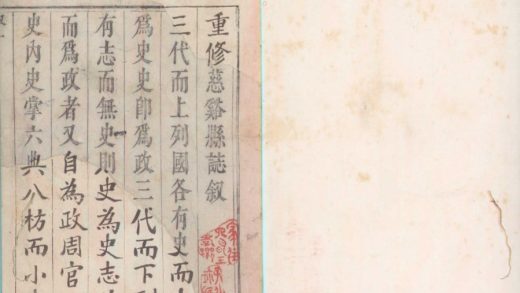 重修慈谿縣誌叙
三代而上列國各有史而
爲史史卽爲政三代而下
有志而無史則史為史志
而爲政者又自為政周官
史內史掌六典八枋而小